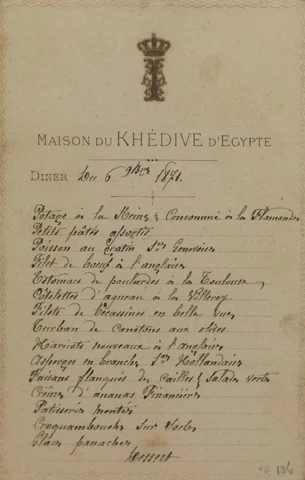 MAISON DU KHÉDIVE D'EGYPTE
DINER Du 6 9bre 1871.
Potage à la Reine & Consommé à la Flamande
Petits pâtés assortis
Poisson au gratin Sce Genevoise
Filet de bœuf à l'anglaise
Estomacs de poulardes à la Toulouse
Côtelettes d'agneau à la Villeroy
Filets de bécassines en belle vue
Turban de canetons aux olives
Haricots nouveaux à l'anglaise
Asperges en branches Sce Hollandaise
Faisans flanqués de cailles & Salade verte
Crèmes d'ananas Financières
Patisseries montées
Croquembouche sur Socles
Glace panachée
Dessert
134